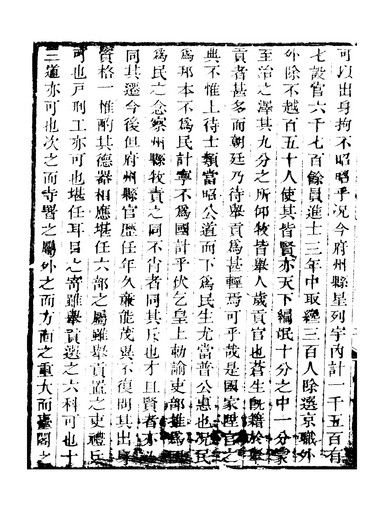 可以出身拘不昭昭乎况今府州縣星列宇內計一千五百有
七設官六千七百餘員進士三年中取纔三百人除選京職外
外除不越百五十人使其皆賢亦天下編氓十分之中一分蒙
至治之澤其九分之所仰牧皆舉人歲貢官也蒼生既籍於舉
貢者甚多而朝廷乃待舉貢爲甚輕焉可乎哉是國家陞官之
典不惟上待士類當昭公道而下爲民生尤當普公惠也况民
爲邦本不爲民計寧不爲國計乎伏乞皇上勅諭吏部推爲
爲民之念察州縣牧責之同不肖者同其斥也才且賢者亦
同其選今後但府州縣官歷任年久兼能茂異不復問其出
資格一惟酌其德器相應堪任六部之屬雖舉貢置之吏禮兵
可也戸刑工亦可也堪任耳目之寄雖舉貢選之六科可也十
三道亦可也次之而寺署之屬外之而方面之重大而臺閣之